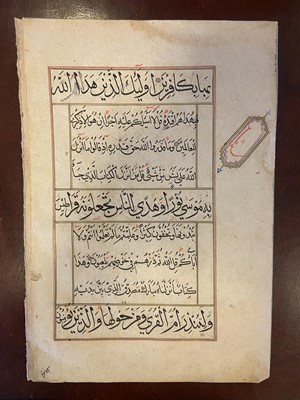 بها بكافرين اولئك الذين هدى الله
فبهديهم اقتده قل لا اسئلكم عليه اجرا ان هو الا ذكرى
للعالمين وما قدروا الله حق قدره اذ قالوا ما انزل
الله على بشر من شيء قل من انزل الكتاب الذي جاء
به موسى نورا وهدى للناس تجعلونه قراطيس
تبدونها وتخفون كثيرا وعلمتم ما لم تعلموا انتم ولا
آباؤكم قل الله ثم ذرهم في خوضهم يلعبون وهذا
كتاب انزلناه مبارك مصدق الذي بين يديه
ولتنذر ام القرى ومن حولها والذين يؤمنون